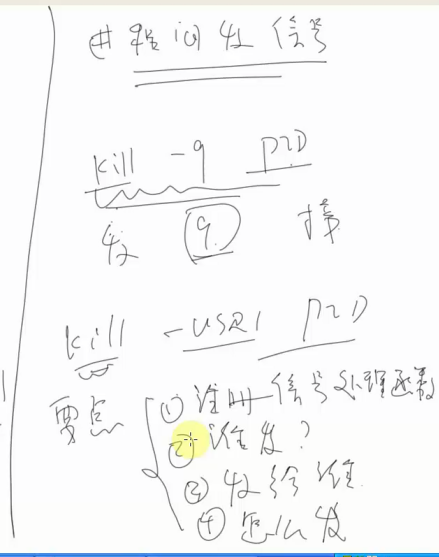 进程间发信号
kill -9 PID
发 9 接
kill -USR1 PID
要点
① 注册信号处理函数
② 谁发?
③ 发给谁
④ 怎么发